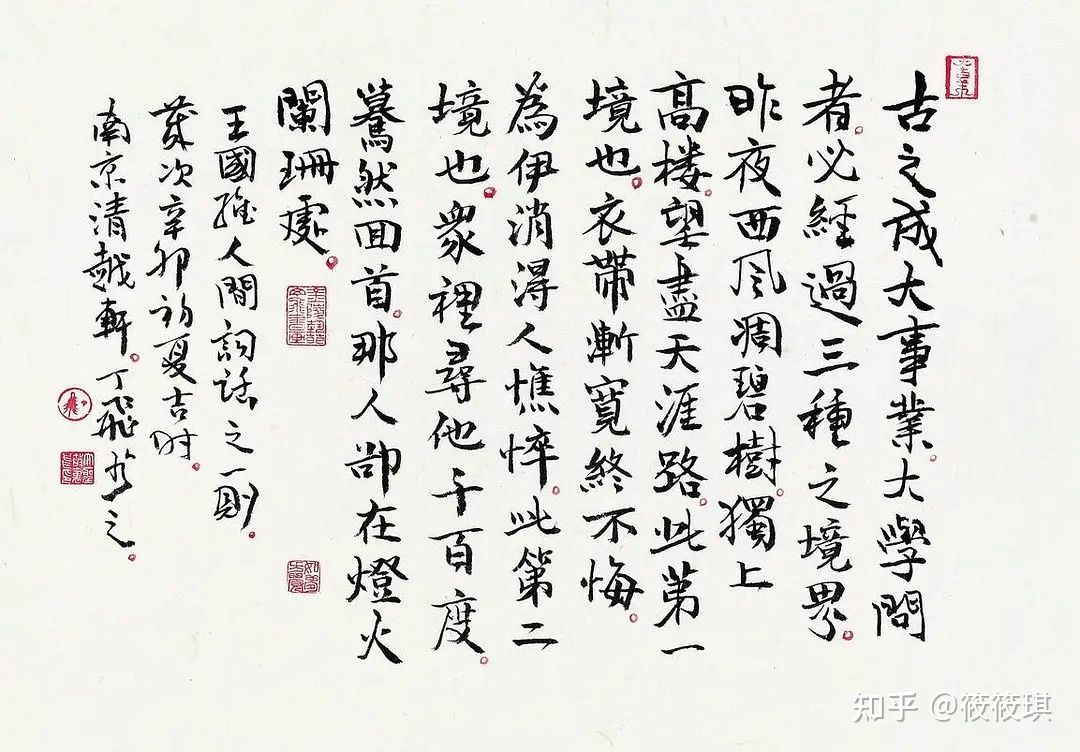 古之成大事業大學問
者。必經過三種之境界。
昨夜西风凋碧樹。獨上
高楼。望盡天涯路。此第一
境也。衣帶漸寬終不悔。
為伊消得人憔悴。此第二
境也。衆裡尋他千百度。
驀然回首。那人卻在燈火
闌珊處。
王國維人間詞話之一則。
歲次辛卯初夏吉時。
南京清越軒。丁飛书之。
知乎 @筱筱琪